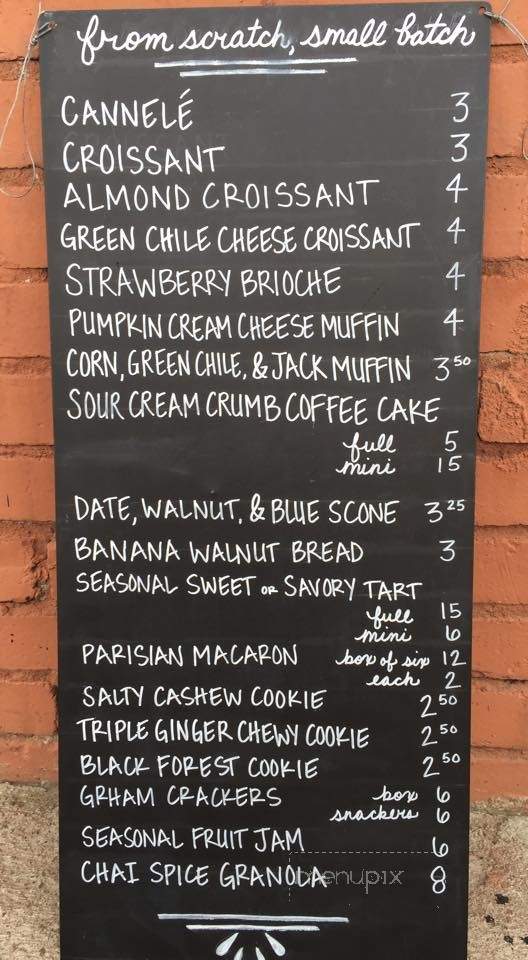 from scratch, small batch
CANNELÉ 3
CROISSANT 3
ALMOND CROISSANT 4
GREEN CHILE CHEESE CROISSANT 4
STRAWBERRY BRIOCHE 4
PUMPKIN CREAM CHEESE MUFFIN 4
CORN, GREEN CHILE, & JACK MUFFIN 3 50
SOUR CREAM CRUMB COFFEE CAKE
full 5
mini 15
DATE, WALNUT, & BLUE SCONE 3 25
BANANA WALNUT BREAD 3
SEASONAL SWEET OR SAVORY TART
full 15
mini 6
PARISIAN MACARON box of six 12
each 2
SALTY CASHEW COOKIE 2 50
TRIPLE GINGER CHEWY COOKIE 2 50
BLACK FOREST COOKIE 2 50
GRHAM CRACKERS box 6
snackers 6
SEASONAL FRUIT JAM 6
CHAI SPICE GRANOLA 8
menupix